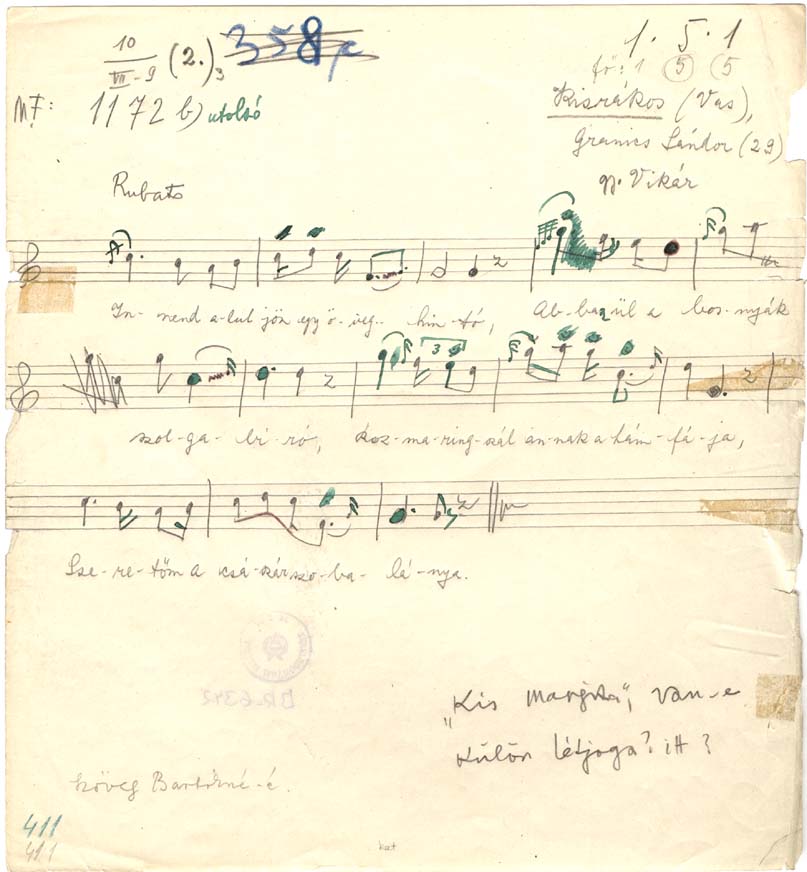 10
VII-9 (2.)3 358
1. 5. 1
fő: 1 5 5
M.F.: 1172 b) utolsó
Kisrákos (Vas),
Granics Sándor (29)
gy. Vikár
Rubato
In-nend a-lul jön egy ö-veg-hin-tó, Ab-bazül a bos-nyák
szol-ga-bí-ró, Roz-ma-ring-szál an-nak a hám-fá-ja,
Sze-re-tőm a csá-szár szo-ba-lá-nya.
BR-6342
„Kis Margita", van-e
külön létjoga? itt?
Szöveg Bartókné-é.
411
411